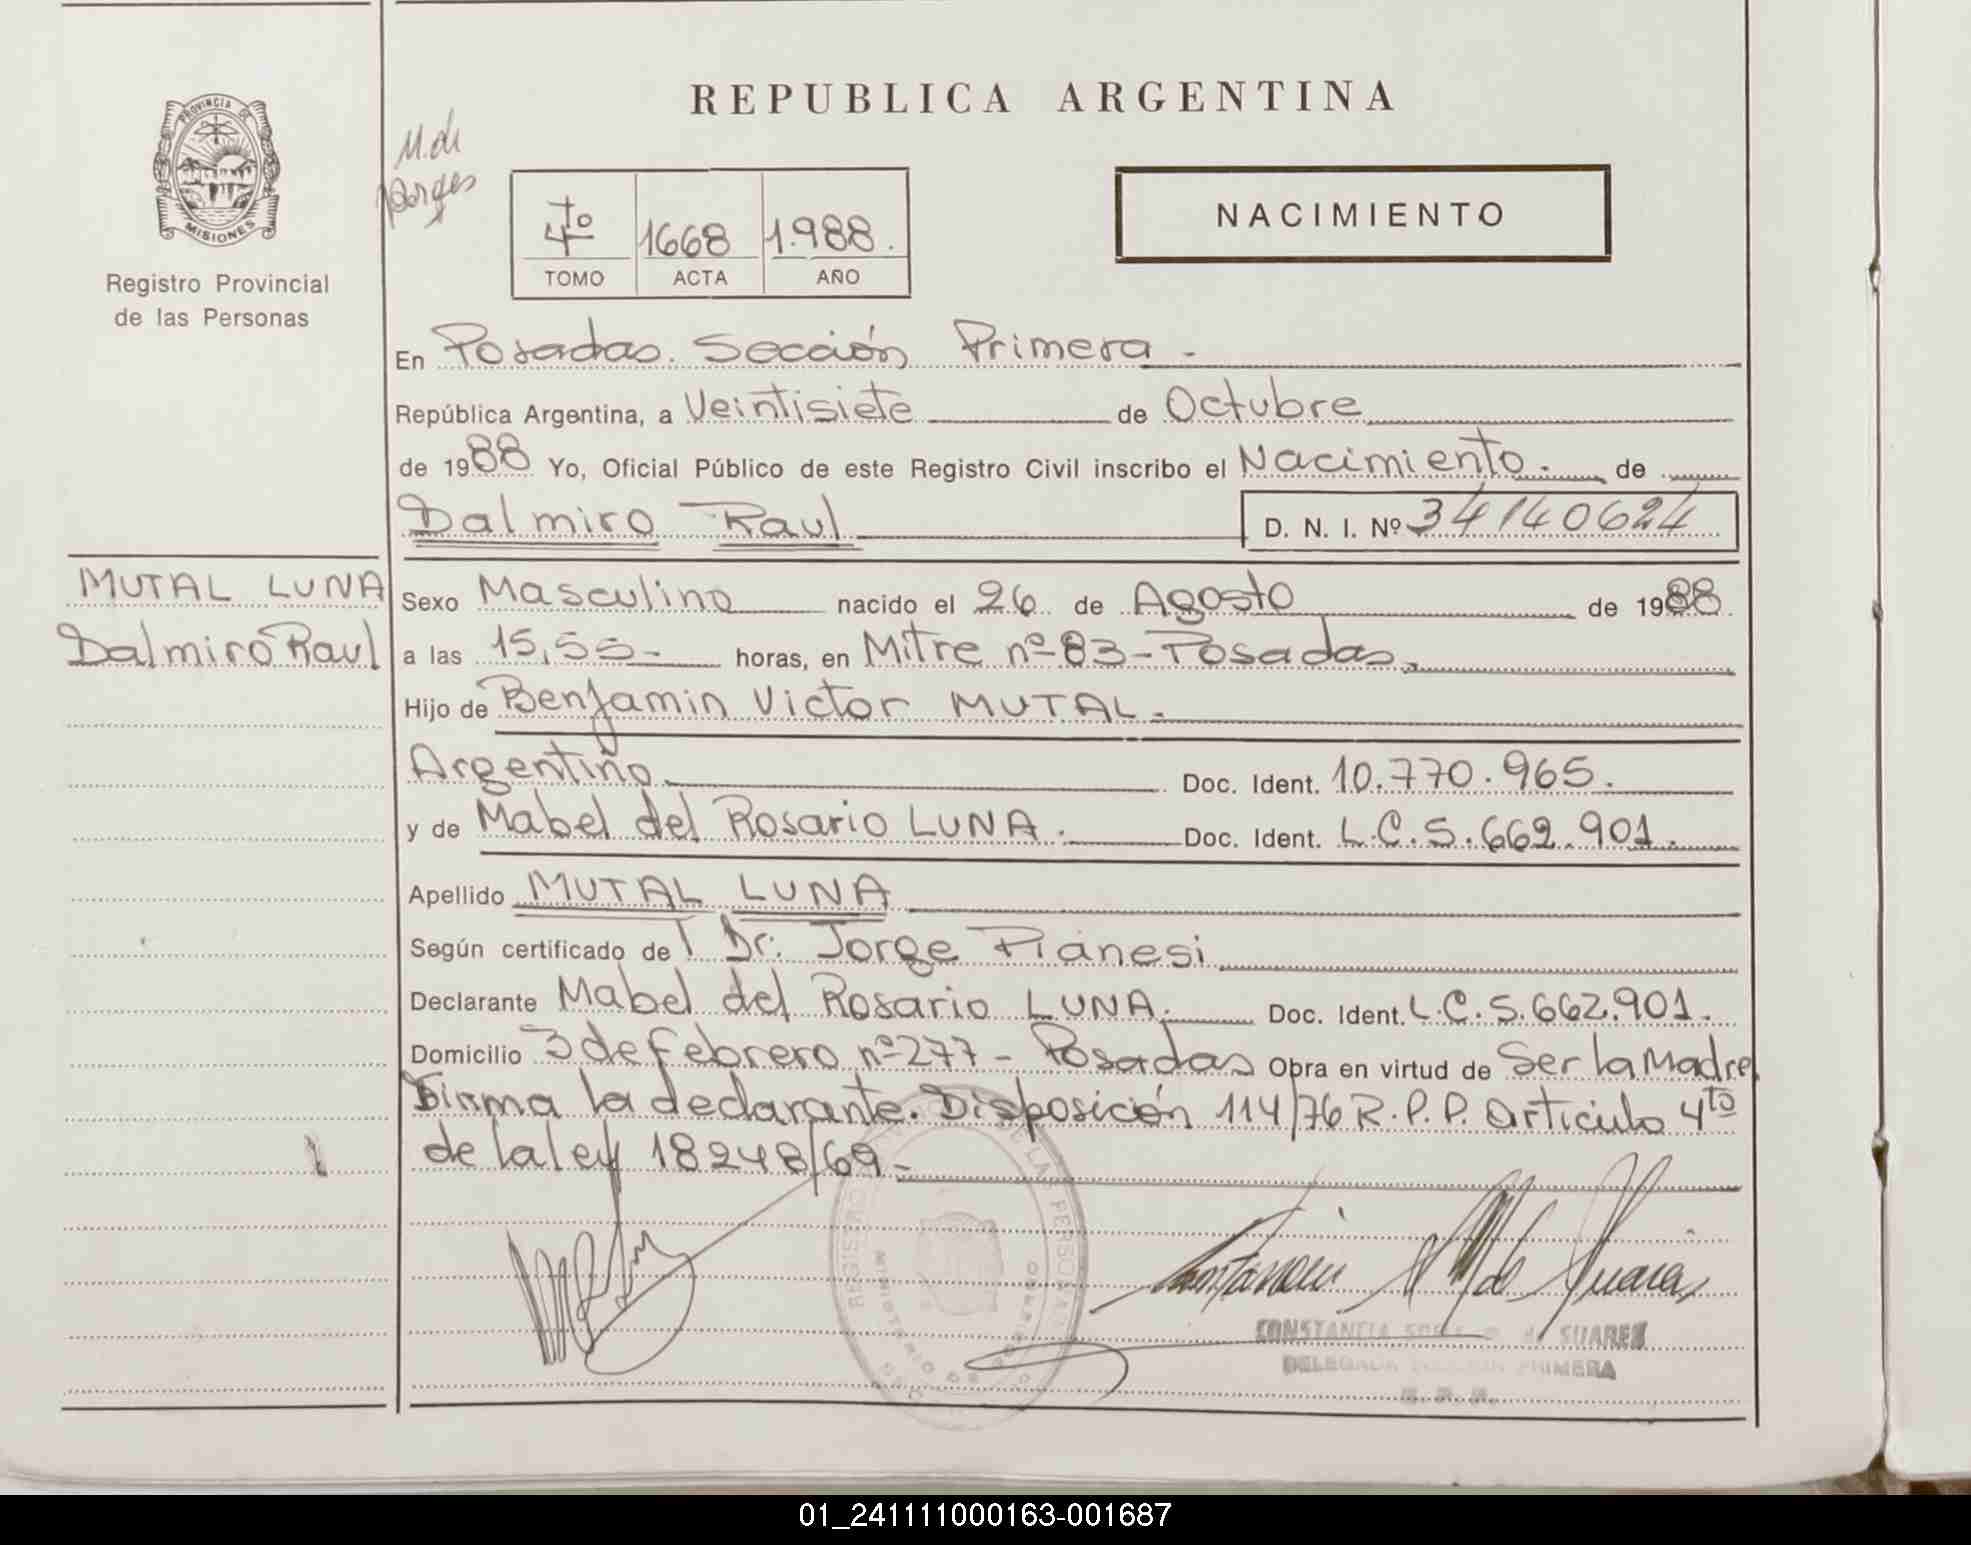 REPUBLICA ARGENTINA
PROVINCIA DE
MISIONES
Registro Provincial
de las Personas
NACIMIENTO
4to 1668 1.988.
TOMO ACTA AÑO
En Posadas. Sección Primera -
República Argentina, a Veintisiete de Octubre
de 1988 Yo, Oficial Público de este Registro Civil inscribo el Nacimiento. de
Dalmiro Raul D. N. I. Nº 34140624
MUTAL LUNA
Dalmiro Raul
Sexo Masculino nacido el 26 de Agosto de 1988.
a las 15,55- horas, en Mitre nº 83-Posadas.
Hijo de Benjamin Victor MUTAL.
Argentino. Doc. Ident. 10.770.965.
y de Mabel del Rosario LUNA. Doc. Ident. L.C.5.662.901.
Apellido MUTAL LUNA
Según certificado de Dr. Jorge Pianesi
Declarante Mabel del Rosario LUNA. Doc. Ident. L.C.5.662.901.
Domicilio 3 de Febrero nº 277 - Posadas Obra en virtud de Ser la Madre
Firma la declarante. Disposición 114/76 R.P.P. Articulo 4to
de la ley 18248/69-
CONSTANCIA de SUAREZ
DELEGADA PRIMERA
01_241111000163-001687